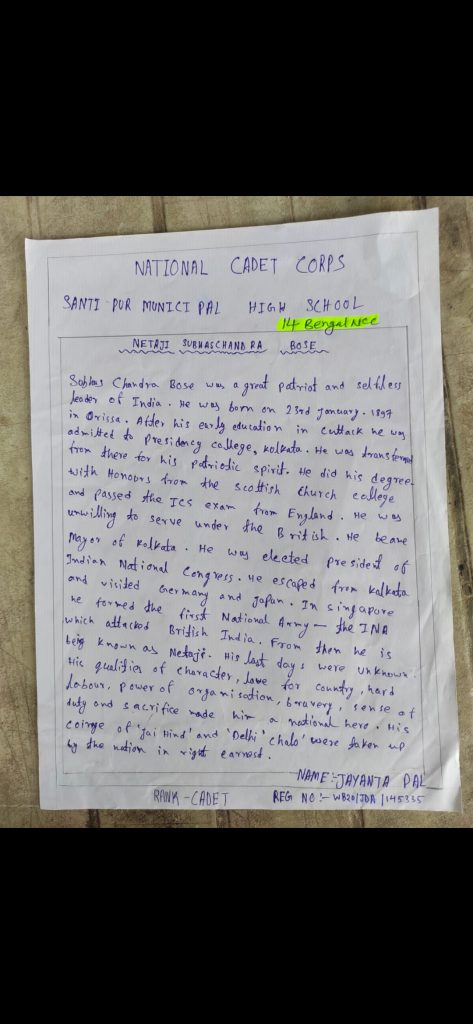 NATIONAL CADET CORPS
SANTI PUR MUNICI PAL HIGH SCHOOL
14 Bengal NCC
NETAJI SUBHASCHANDRA BOSE
Subhas Chandra Bose was a great patriot and selfless
leader of India. He was born on 23rd January. 1897
in Orissa. After his early education in Cuttack he was
admitted to presidency college, Kolkata. He was transferred
from there for his patriotic spirit. He did his degree
with Honours from the Scottish Church college
and passed the ICS exam from England. He was
unwilling to serve under the British. He beame
Mayor of Kolkata. He was elected president of
Indian National Congress. He escaped from Kolkata
and visited Germany and Japan. In singapore
he formed the first National Army - the INA
which attacked British India. From then he is
beig known as Netaji. His last days were unknown.
His qualities of character, love for country, hard
labour, power of organisation, bravery, sense of
duty and sacrifice made him a national hero. His
coinge of 'Jai Hind' and 'Delhi chalo' were taken up
by the nation in right earnest.
NAME:-JAYANTA PAL
RANK-CADET REG NO:- WB20/JDA/145335